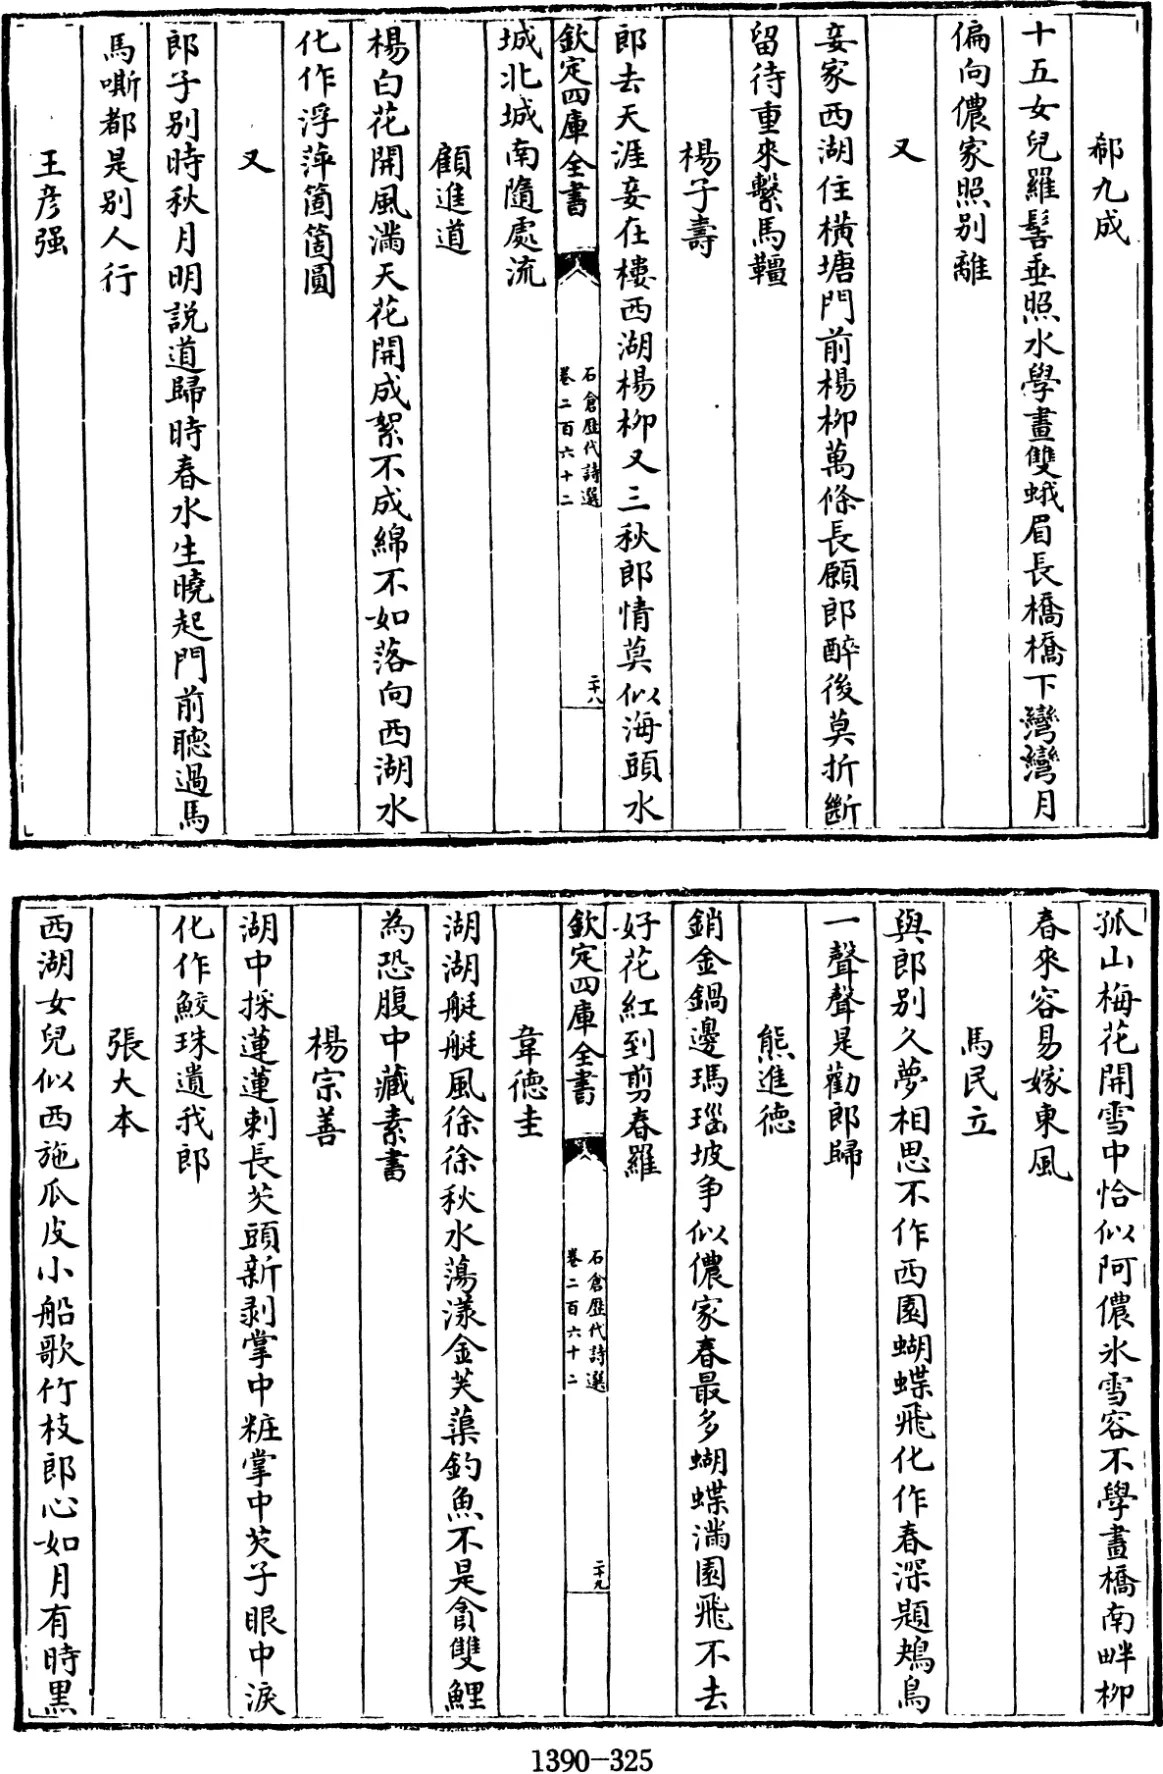 郝九成
十五女兒羅髻垂照水學畫雙蛾眉長橋橋下灣灣月
偏向儂家照别離
又
妾家西湖住横塘門前楊柳萬條長願郎醉後莫折斷
留待重來繫馬韁
楊子壽
郎去天涯妾在樓西湖楊柳又三秋郎情莫似海頭水
欽定四庫全書
石倉歷代詩選
卷二百六十二
二十八
城北城南隨處流
顧進道
楊白花開風滿天花開成絮不成綿不如落向西湖水
化作浮萍箇箇圓
又
郎子别時秋月明説道歸時春水生曉起門前聽過馬
馬嘶都是别人行
王彦强
孤山梅花開雪中恰似阿儂氷雪容不學畫橋南畔柳
春來容易嫁東風
馬民立
與郎别久夢相思不作西園蝴蝶飛化作春深題鴂鳥
一聲聲是勸郎歸
熊進德
銷金鍋邊瑪瑙坡争似儂家春最多蝴蝶滿園飛不去
好花紅到剪春羅
欽定四庫全書
石倉歷代詩選
卷二百六十二
二十九
韋德圭
湖湖艇艇風徐徐秋水蕩漾金芙蕖釣魚不是貪雙鯉
為恐腹中藏素書
楊宗善
湖中採蓮蓮刺長芡頭新剥掌中粧掌中芡子眼中淚
化作鮫珠遺我郎
張大本
西湖女兒似西施瓜皮小船歌竹枝郎心如月有時黒
1390-325